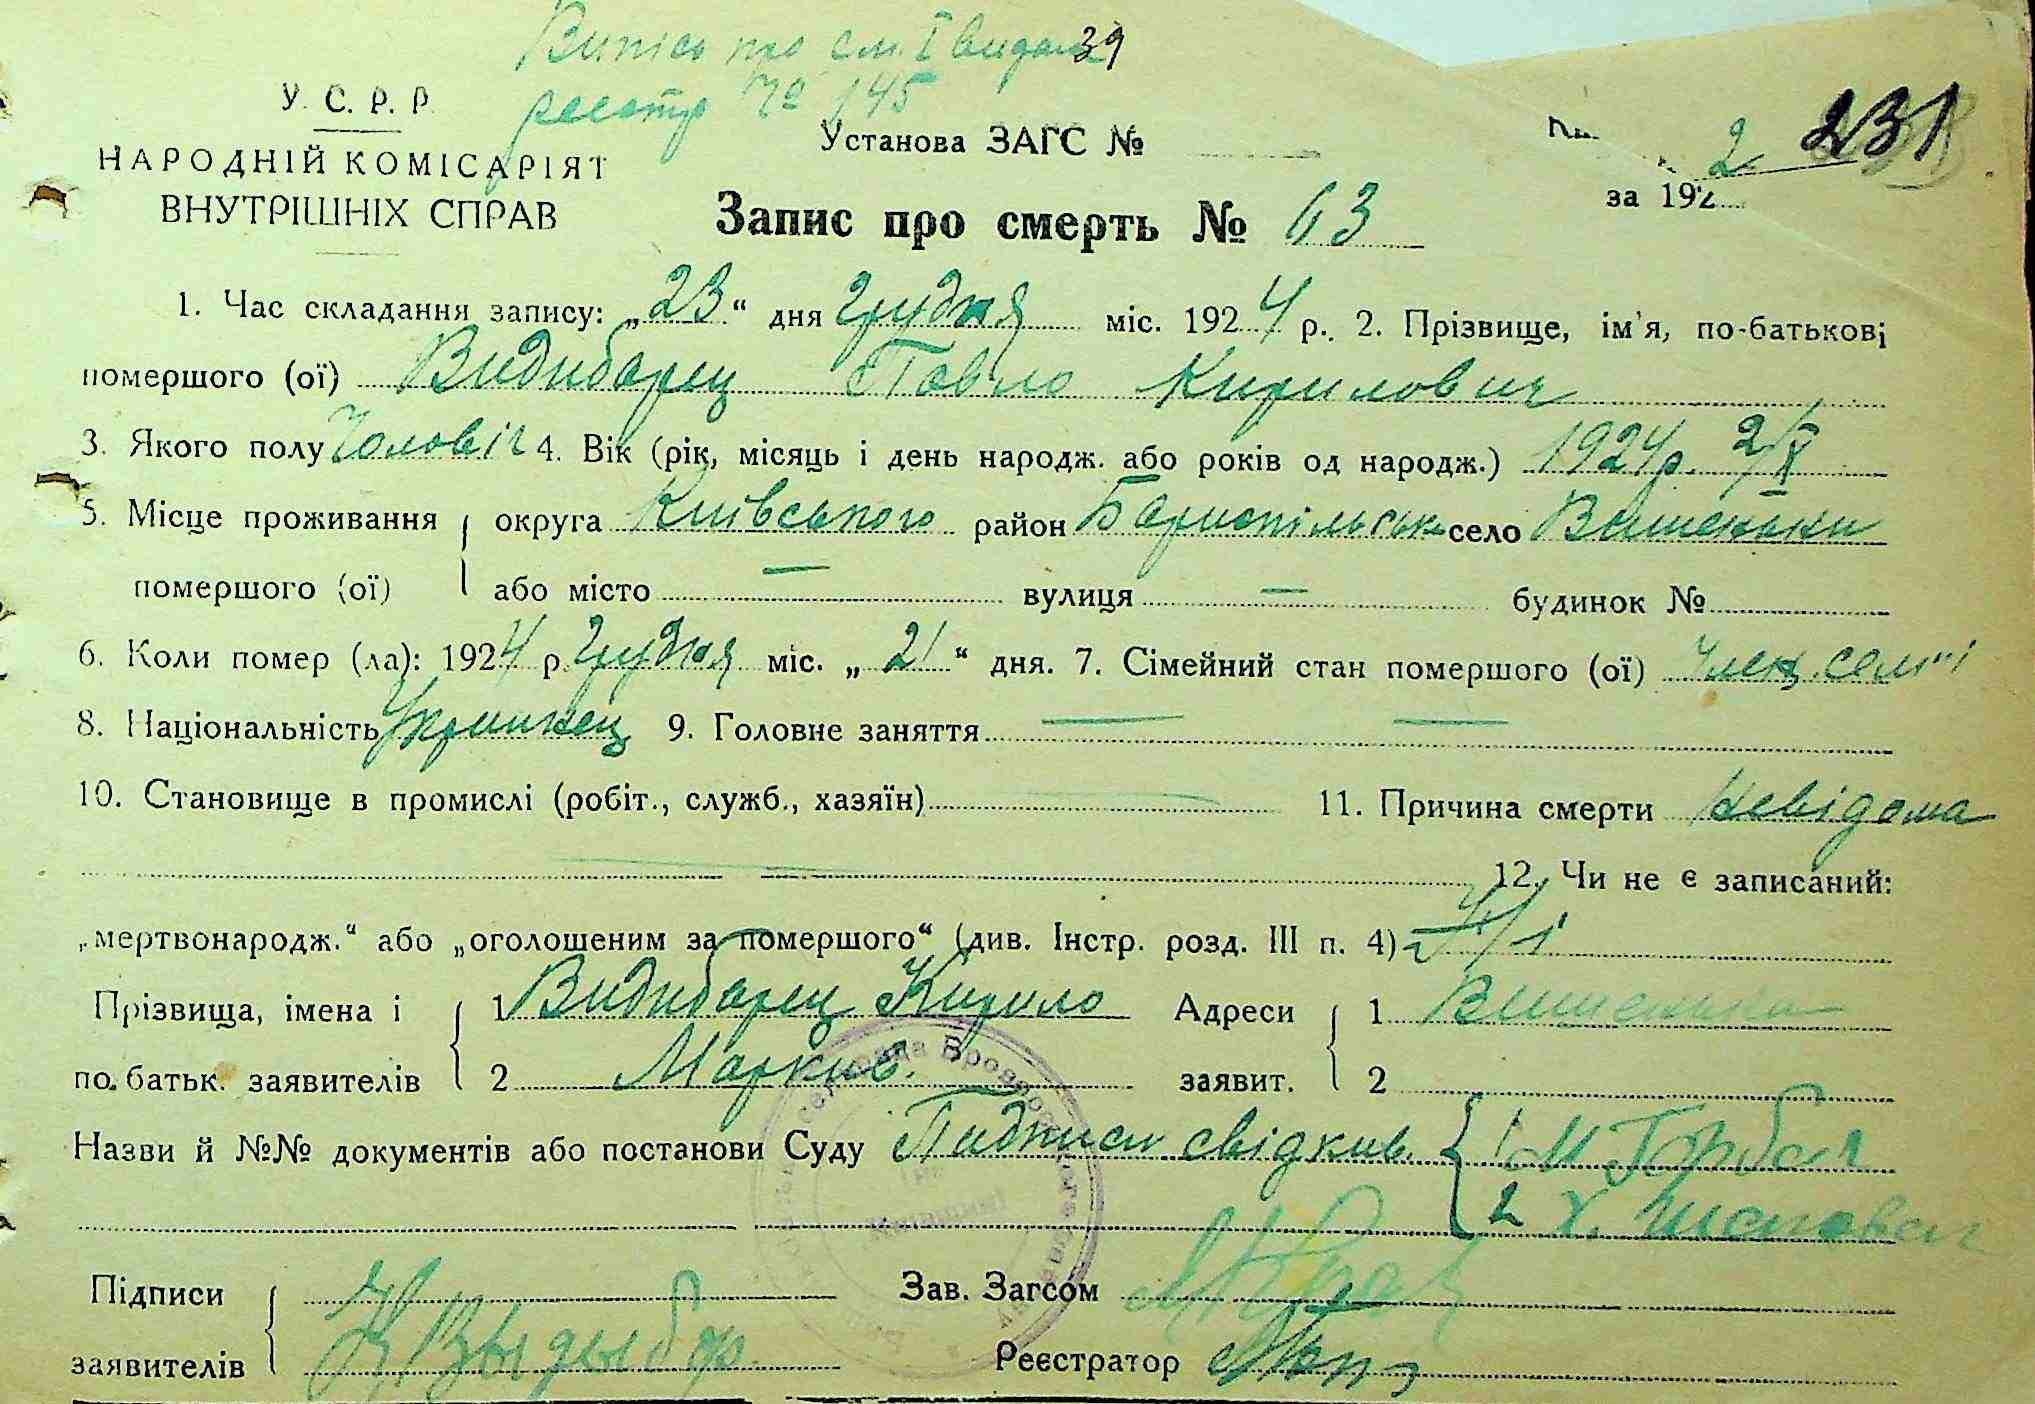 Випись про см. і видом 39
реєстр № 145
У. С. Р. Р.
НАРОДНІЙ КОМІСАРІЯТ
ВНУТРІШНІХ СПРАВ
Установа ЗАГС №
2 231
за 192
Запис про смерть № 63
1. Час складання запису: „23“ дня Грудня міс. 1924 р. 2. Прізвище, ім'я, по-батькові
помершого (ої) Видибарец Павло Кирилович
3. Якого полу Чоловіч 4. Вік (рік, місяць і день народж. або років од народж.) 1924 р. 2/X
5. Місце проживання округа Київського район Бориспільськ село Вишеньки
помершого (ої) або місто — вулиця — будинок №
6. Коли помер (ла): 1924 р. Грудня міс. „21“ дня. 7. Сімейний стан помершого (ої) член. сем'ї
8. Національність Украинец 9. Головне заняття — —
10. Становище в промислі (робіт., служб., хазяїн) 11. Причина смерти Невідома
12. Чи не є записаний:
„мертвонародж.“ або „оголошеним за помершого“ (див. Інстр. розд. III п. 4)
Прізвища, імена і 1 Видибарец Кирило Адреси 1 Вишенька
по батьк. заявителів 2 Маркив. заявит. 2
Назви й №№ документів або постанови Суду Пидписи свідкив. 1 М Горбач
2 Х. Шаповал
Підписи Зав. Загсом
заявителів К Выдыбор Реєстратор